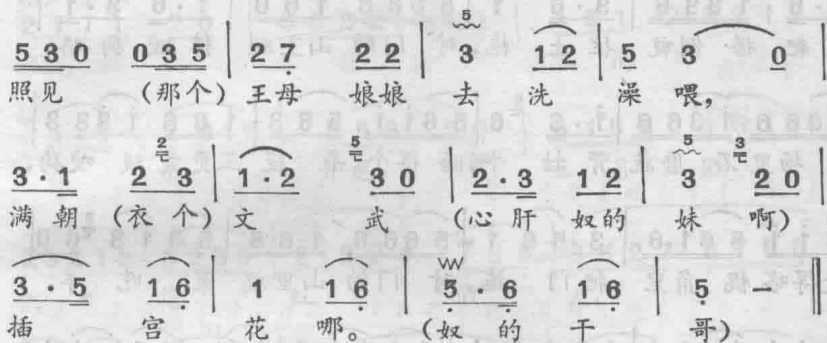 5 3 0 0 3 5 | 2 7 2 2 | 3 1 2 | 5 3 0
照见 (那个) 王母 娘娘 去 洗 澡 喂,
3 · 1 2 3 | 1 · 2 3 0 | 2 · 3 1 2 | 3 2 0
满朝 (衣个) 文 武 (心肝 奴的 妹 啊)
3 · 5 1 6 | 1 1 6 | 5 · 6 1 6 | 5 - ‖
插 宫 花 哪。 (奴 的 干 哥)